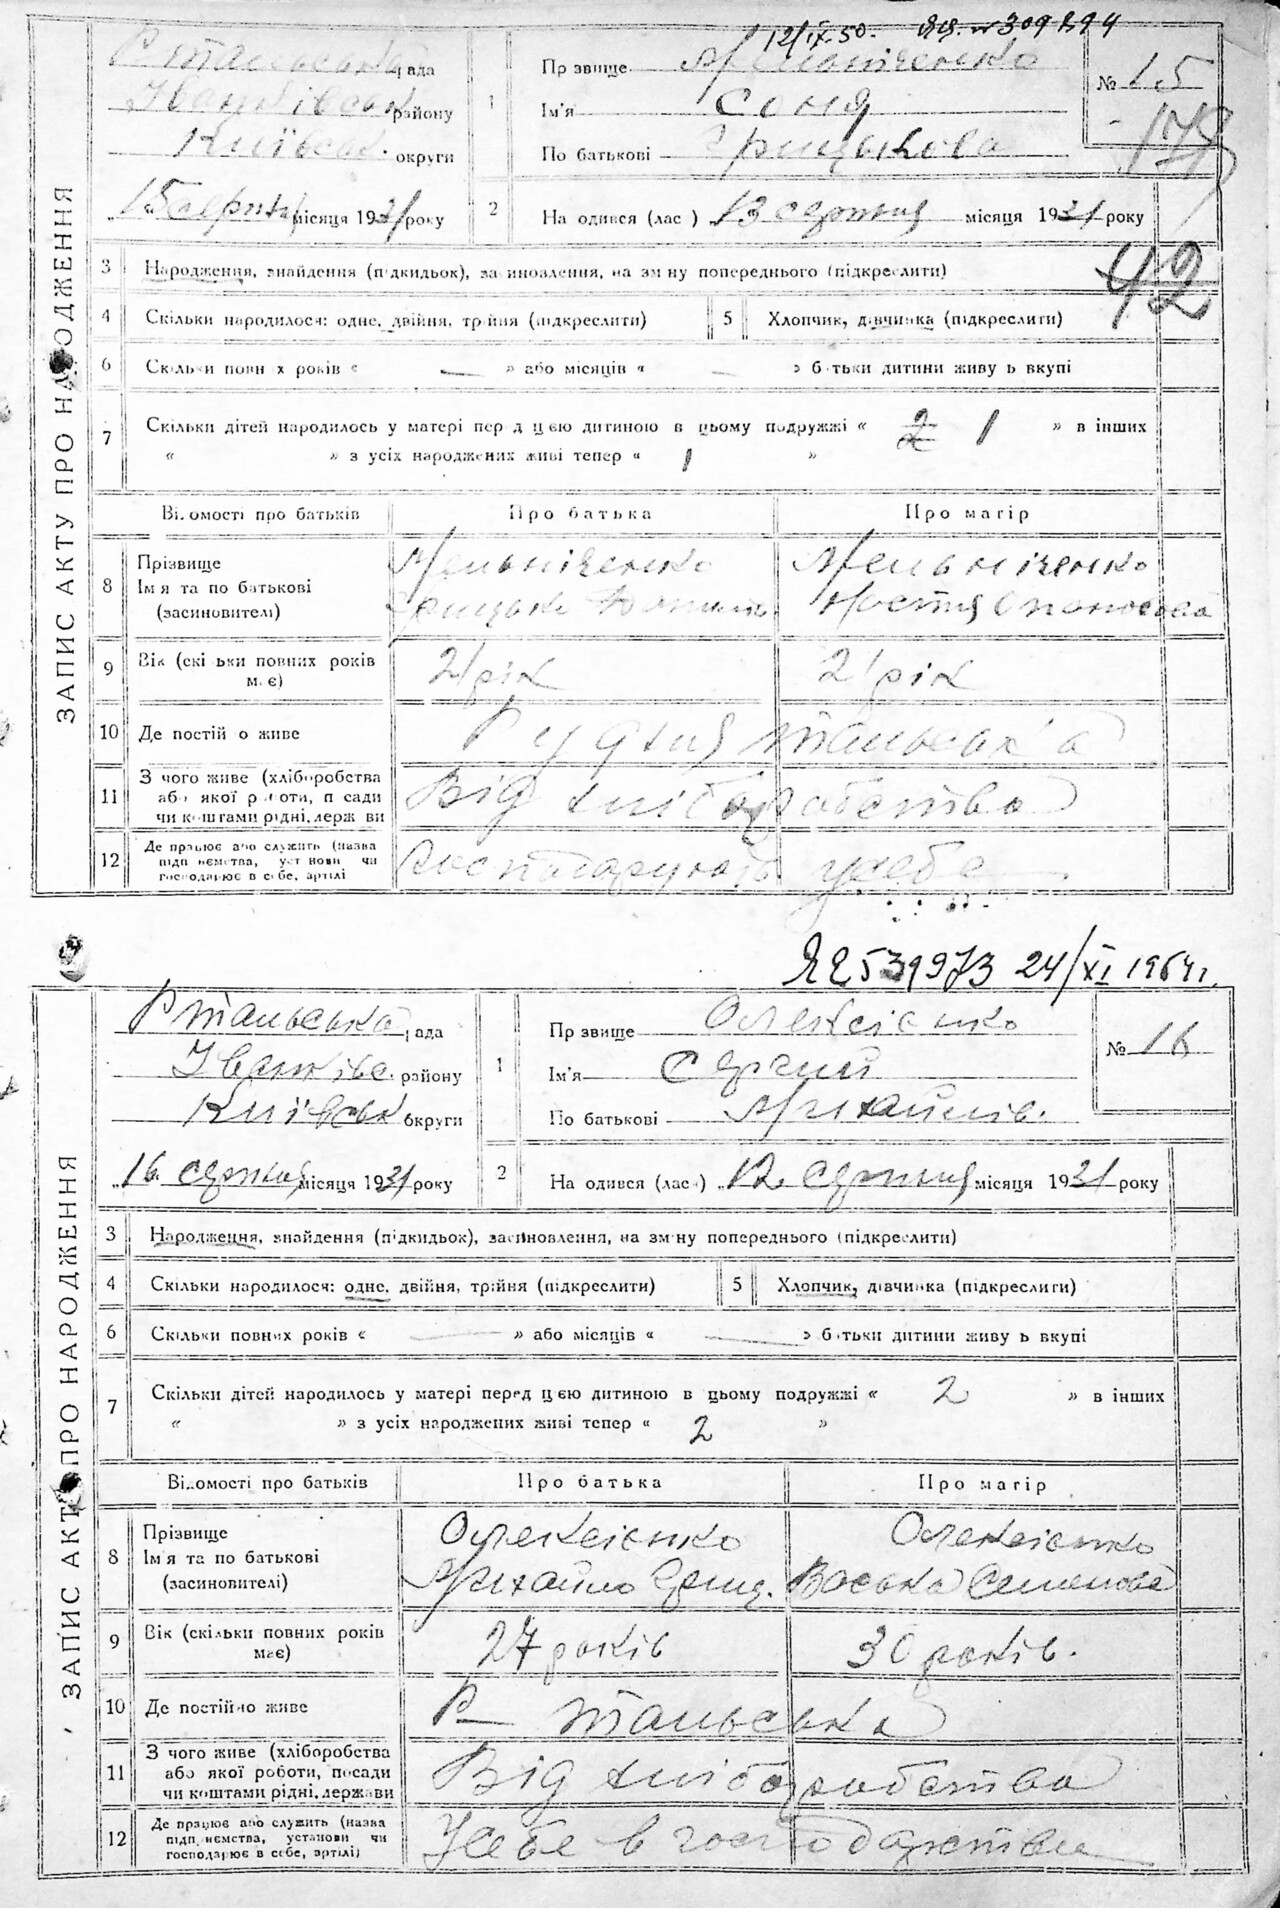 12/IX-50.
ЗАПИС АКТУ ПРО НАРОДЖЕННЯ
Р тальська рада
Іванківськ району
Київськ. округи
15 серпня місяця 1931 року
1
Прізвище Мельніченко
Ім'я Соня
По батькові Грицькова
№ 15
178
2 На одився (лас ) 13 серпня місяця 1931 року
42
3 Народження, знайдення (підкидьок), засиновлення, на зміну попереднього (підкреслити)
4 Скільки народилося: одне, двійня, трійня (підкреслити) 5 Хлопчик, дівчинка (підкреслити)
6 Скільки повних років « — » або місяців « — » батьки дитини живуть вкупі
7 Скільки дітей народилось у матері перед цією дитиною в цьому подружжі « 2 1 » в інших
« » з усіх народжених живі тепер « 1 »
Відомості про батьків Про батька Про матір
8 Прізвище
Ім'я та по батькові
(засновителі)
Мельніченко
Грицько
Мельніченко
Настя Опанасова
9 Вік (скільки повних років має) 21 рік 21 рік
10 Де постійно живе Рудня тальськ а
11 З чого живе (хліборобства
або якої роботи, посади
чи коштами рідні, держави
Від хліборобства
12 Де працює або служить (назва
підприємства, установи чи
господарює в себе, артілі
Господарують у себе
539973 24/XI 1964 г.
ЗАПИС АКТУ ПРО НАРОДЖЕННЯ
Р тальська рада
Іванківс. району
Київськ округи
16 серпня місяця 1931 року
1
Прізвище Олексієнко
Ім'я Сергій
По батькові Михайлів.
№ 16
2 На одився (лас ) 12 серпня місяця 1931 року
3 Народження, знайдення (підкидьок), засиновлення, на зміну попереднього (підкреслити)
4 Скільки народилося: одне, двійня, трійня (підкреслити) 5 Хлопчик, дівчинка (підкреслити)
6 Скільки повних років « — » або місяців « — » батьки дитини живуть вкупі
7 Скільки дітей народилось у матері перед цією дитиною в цьому подружжі « 2 » в інших
« » з усіх народжених живі тепер « 2 »
Відомості про батьків Про батька Про матір
8 Прізвище
Ім'я та по батькові
(засиновителі)
Олексієнко
Михайло Гриц.
Олексієнко
Васька Семенова
9 Вік (скільки повних років має) 27 років 30 років.
10 Де постійно живе Р тальська
11 З чого живе (хліборобства
або якої роботи, посади
чи коштами рідні, держави
Від хліборобства
12 Де працює або служить (назва
підприємства, установи чи
господарює в себе, артілі)
У себе в господарстві